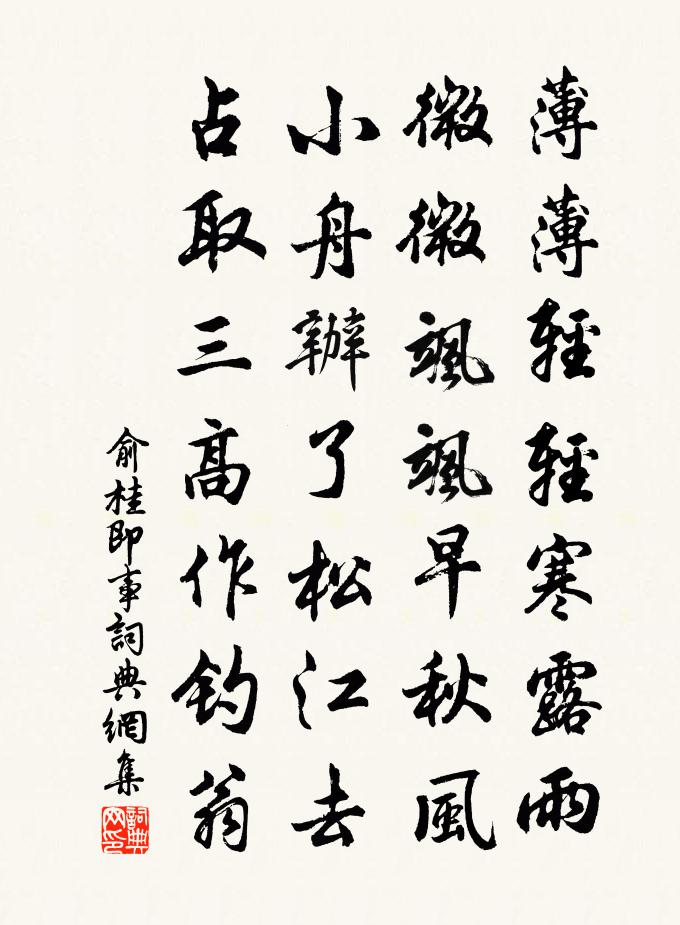 薄薄輕輕寒露雨
微微颯颯早秋風
小舟辦了松江去
占取三高作钓翁
俞桂即事詞典網集
詞典网印